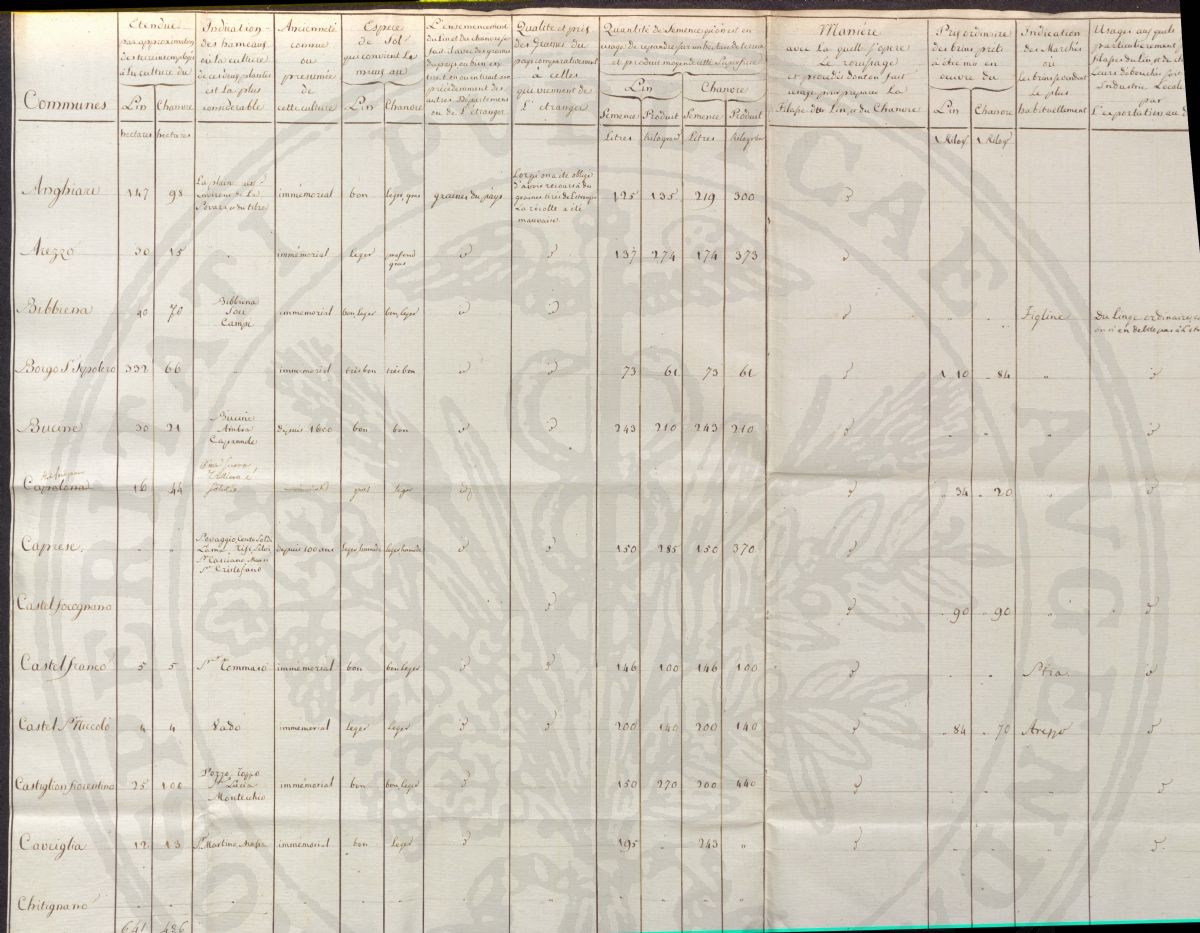 Communes
Etendue
par approximation
des terreins employés
à la culture du
Lin Chanvre
hectares hectares
Indication
des hameaux
où la culture
de ces deux plantes
est la plus
considerable
Ancienneté
connue
ou
presumée
de
cette culture
Espece
de Sol
qui convient le
mieux au
Lin Chanvre
L'ensemencement
du Lin et du chanvre se
fait il avec des graines
du pays ou bien en
précédemment des
autres Départemens
ou de l'etranger
Qualité et prix
des Graines du
pays comparativement
à celles
qui viennent de
L'etranger
Quantité de Semence qu'on est en
usage de repandre sur un hectare de terrein
et produit moyen de cette Superficie
Lin Chanvre
Semence Produit Semence Produit
Litres kilogram Litres kilogram
Maniere
avec La quelle s'opere
Le rouissage
et procédés dont on fait
usage pour preparer La
filasse du Lin et du Chanvre
Prix ordinaire
des brins prêts
à être mis en
oeuvre du
Lin Chanvre
1 kilog 1 kilog
Indication
des Marchés
où
Le brins se vendent
Le plus
habituellement
Usages aux quels
particulierement
filasses du Lin et de
Leurs débouchés soit
Industrie Locale
par
L'exportation au
Anghiari 147 98 La plaine aux environs de La Sovara et du tibre immémorial bon leger, gras graines du pays Lorsqu'on a été obligé d'avoir recours à des graines tirés de l'etranger La récolte a été mauvaise 125 135 219 300
Arezzo 30 15 " immémorial leger profond gras 137 274 174 373
Bibbiena 40 70 Bibbiena Soci Campi immemorial bon leger bon leger Figline Du Linge ordinaire
Borgo St Sepolcro 332 66 " immemorial très bon très bon 73 61 73 61 1 10 " 84 "
Bucine 30 21 Bucine Ambra Capannole depuis 1600 bon bon 243 210 243 210 " " "
Capolona 16 44 immémorial gras leger " 34 " 20 "
Caprese " " depuis 100 ans leger humide leger humide 150 285 150 370 " " "
Castel focognano " 90 " 90 "
Castel franco 5 5 St Tommaso immémorial bon bon leger 146 100 146 100 " "
Castel St Niccolò 4 4 Vado immémorial leger leger 200 140 200 140 " 84 " 70 Arezzo
Castiglion fiorentino 25 100 Pozzo, Toppo St Lucia Montecchio immémorial bon bon leger 150 270 200 440 " " "
Cavriglia 12 13 St Martino immémorial bon leger 195 " 243 " " " "
Chitignano " "
641 436